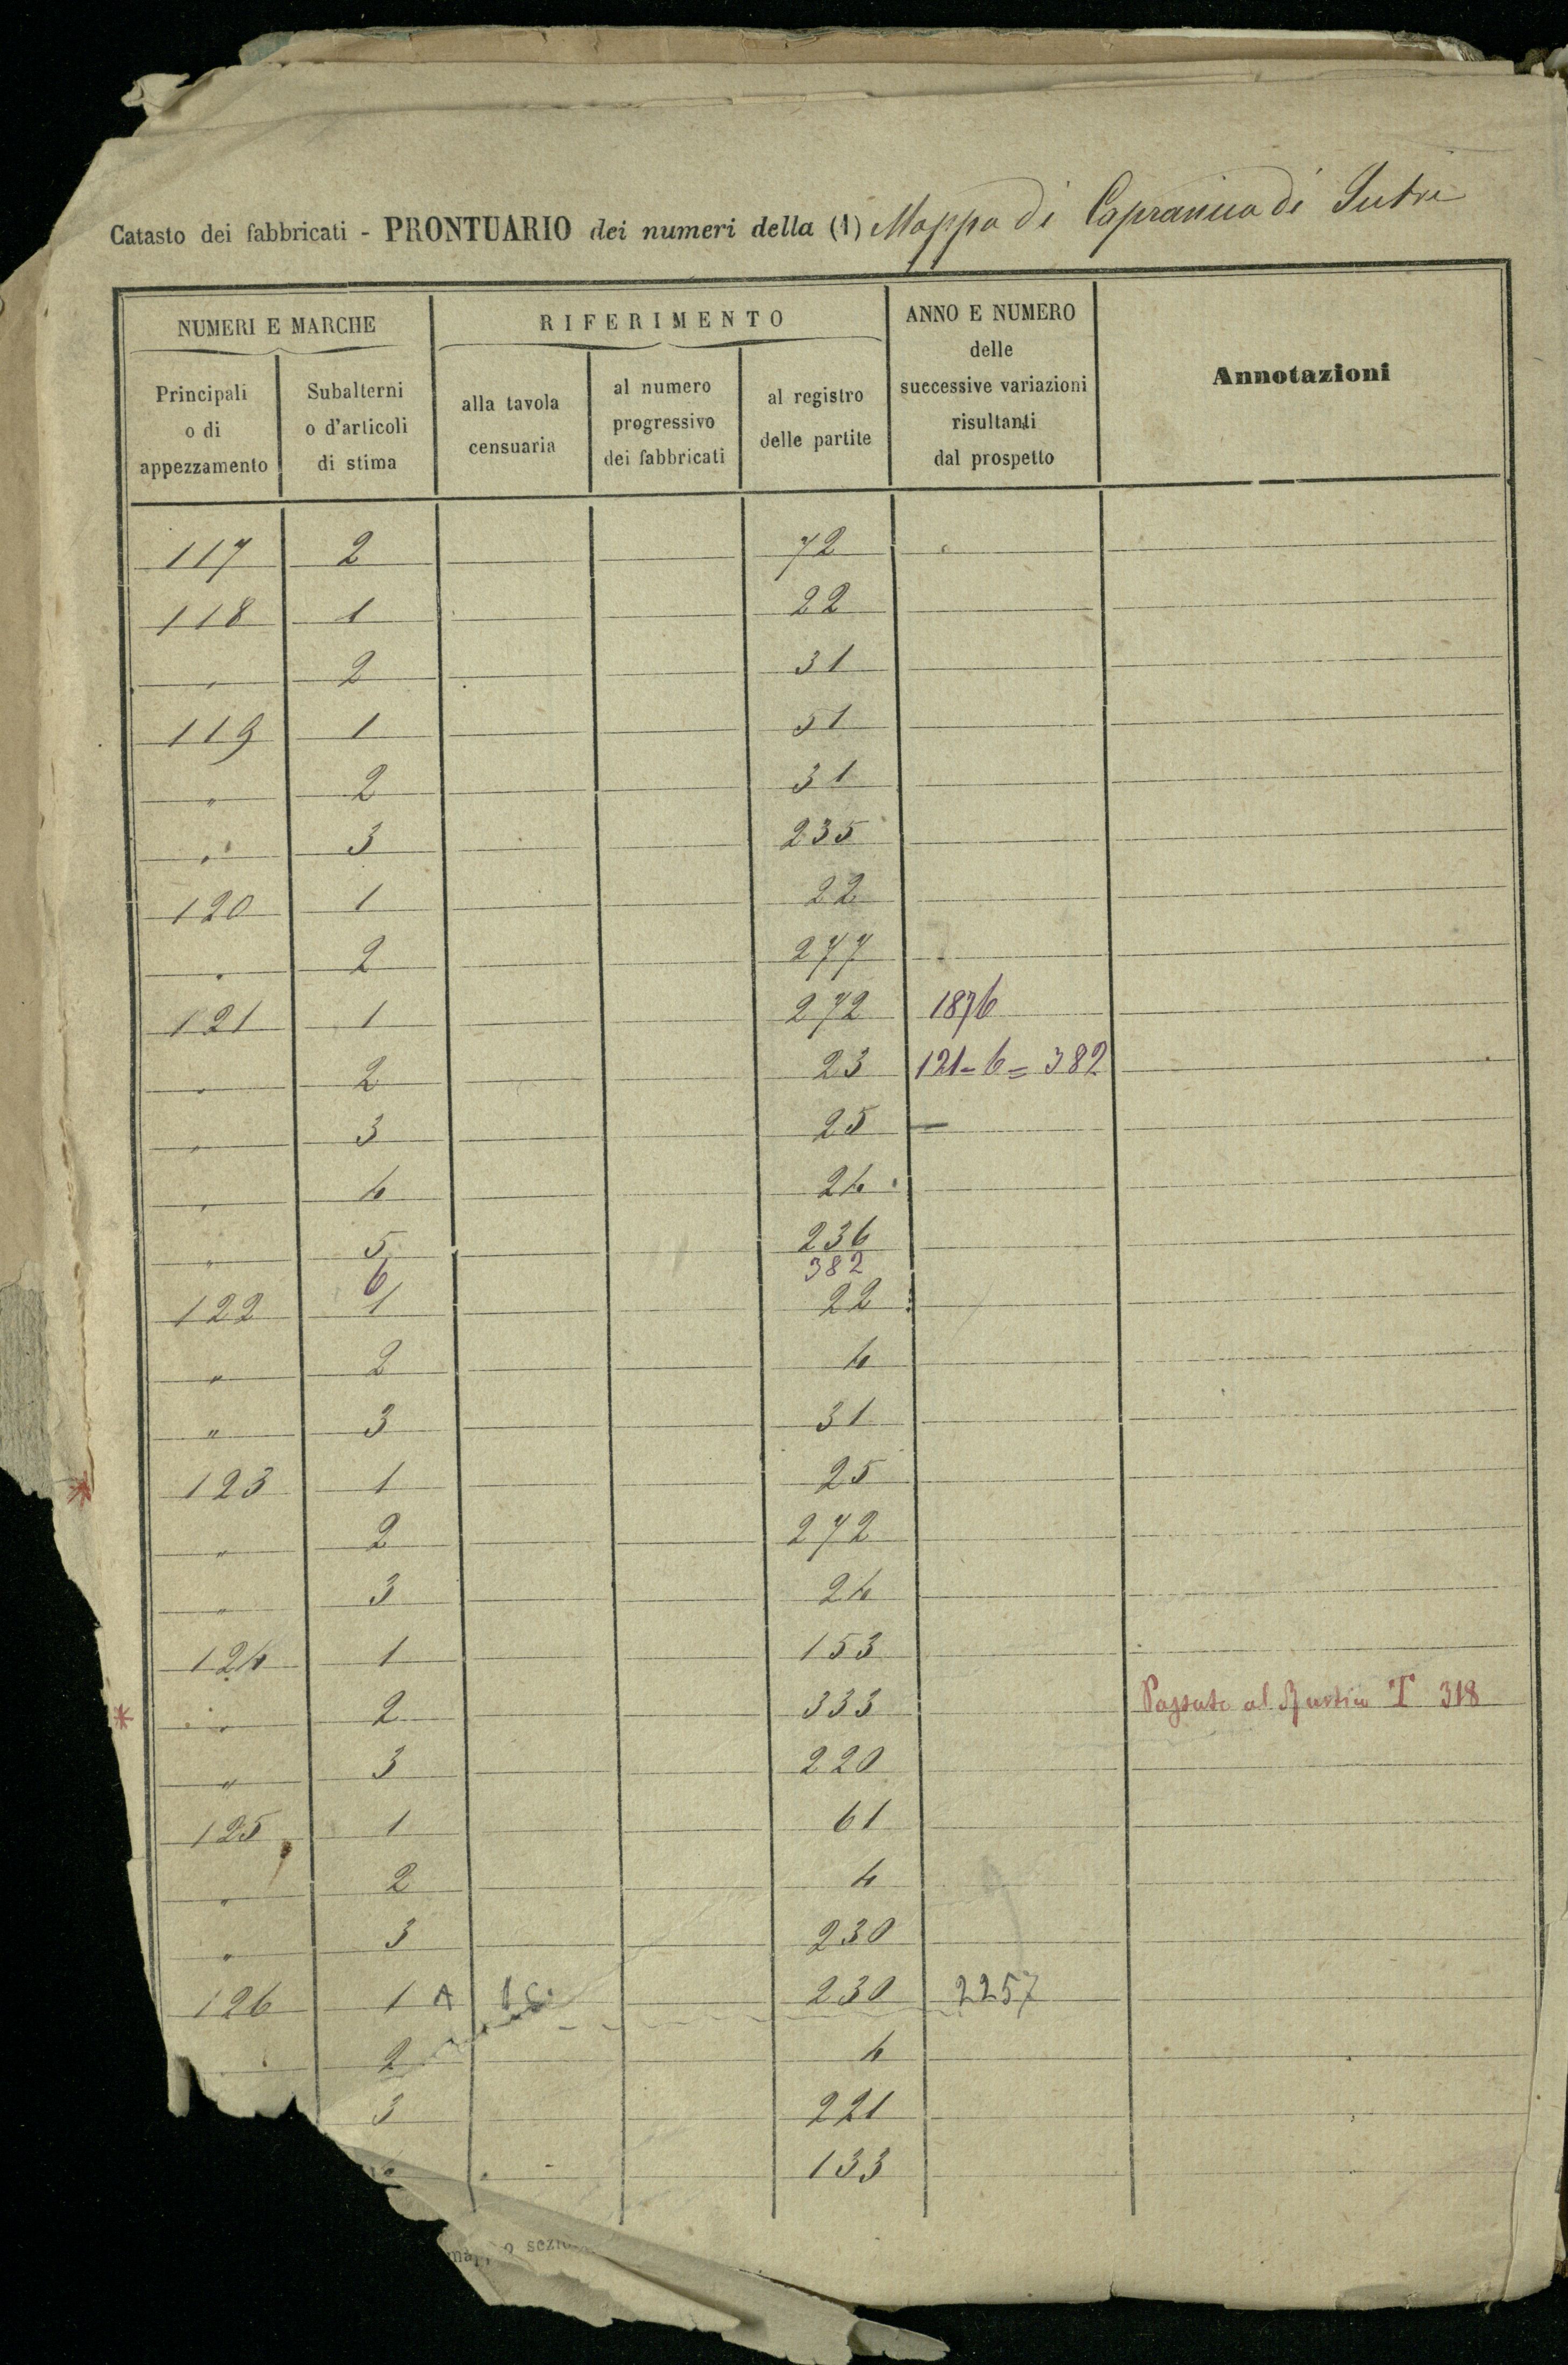 Catasto dei fabbricati - PRONTUARIO dei numeri della (1) Mappa di Capranica di Sutri
NUMERI E MARCHE
RIFERIMENTO
ANNO E NUMERO
delle
successive variazioni
risultanti
dal prospetto
Annotazioni
Principali
o di
appezzamento
Subalterni
o d'articoli
di stima
alla tavola
censuaria
al numero
progressivo
dei fabbricati
al registro
delle partite
117 2 72
118 1 22
" 2 31
119 1 51
" 2 31
" 3 235
120 1 22
" 2 277
121 1 272 1876
" 2 23 121-6= 382
" 3 25 —
" 4 24
" 5 236
6 382
122 1 22
" 2 4
" 3 31
* 123 1 25
" 2 272
" 3 24
124 1 153
* " 2 333 Passato al Rustico T 318
" 3 220
125 1 61
" 2 4
" 3 230
126 1 A 230 2257
2 4
3 221
133